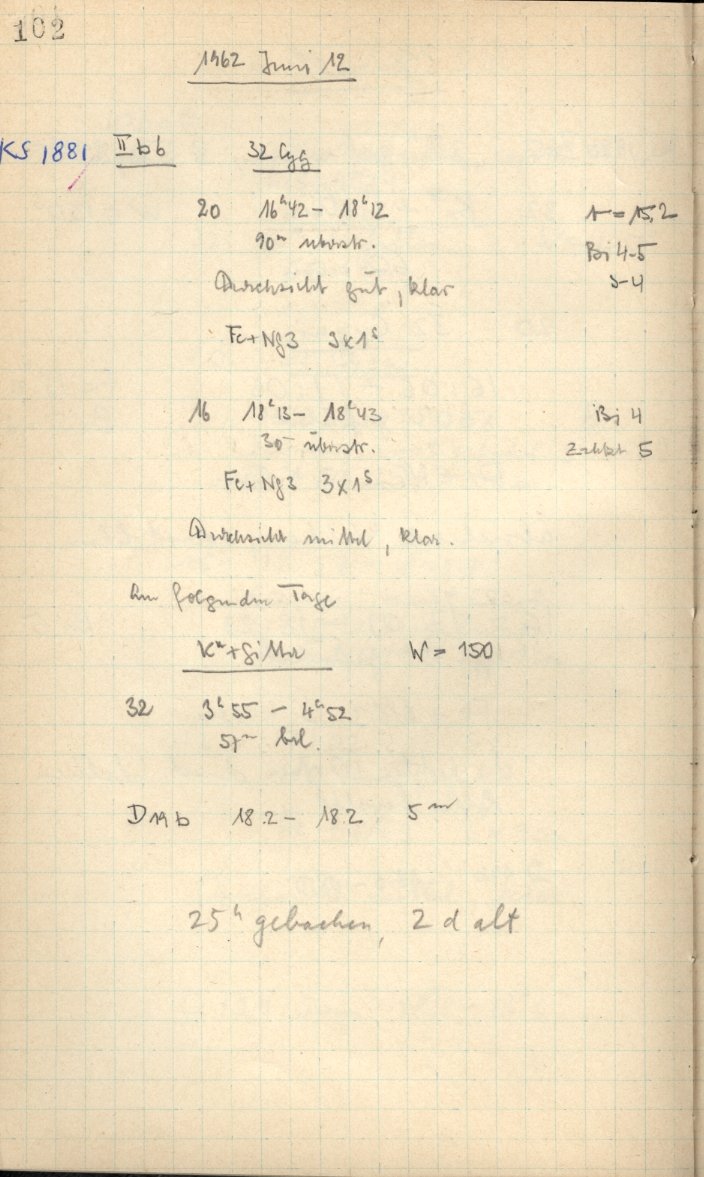 102
1962 Juni 12
KS 1881 IIb6 32 Cyg
20 16ʰ42 – 18ʰ12 t = 15,2
90ᵐ überstr. Bi 4-5
Durchsicht gut, klar S-4
Fe+Ng3 3x1ˢ
16 18ʰ13 – 18ʰ43 Bi 4
30ᵐ überstr. 5
Fe+Ng3 3x1ˢ
Durchsicht mittel, klar.
Am folgenden Tage
+Gitter W = 150
32 3ʰ55 – 4ʰ52
57ᵐ bel.
D19b 18.2 – 18.2 5ᵐ
25ʰ gebacken, 2 d alt